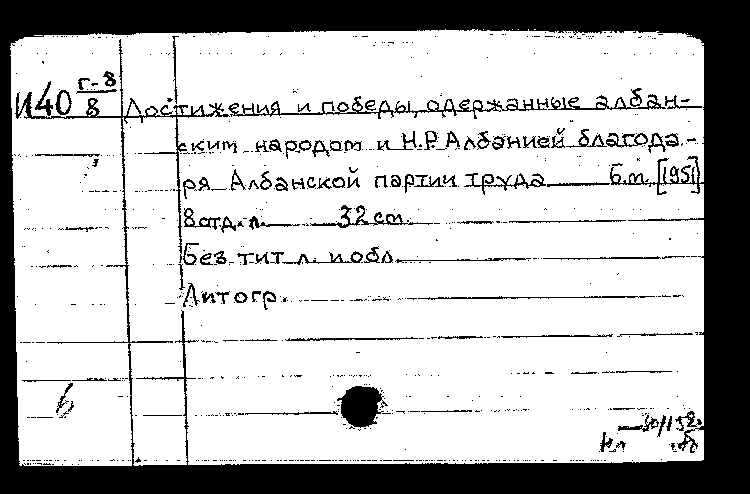 И40 Г-8/8 Достижения и победы, одержанные албан-
ским народом и Н.Р. Албанией благода-
ря Албанской партии труда Б.м. [1951]
8 отд. л. 32 cm.
Без тит л. и обл.
Литогр.
6